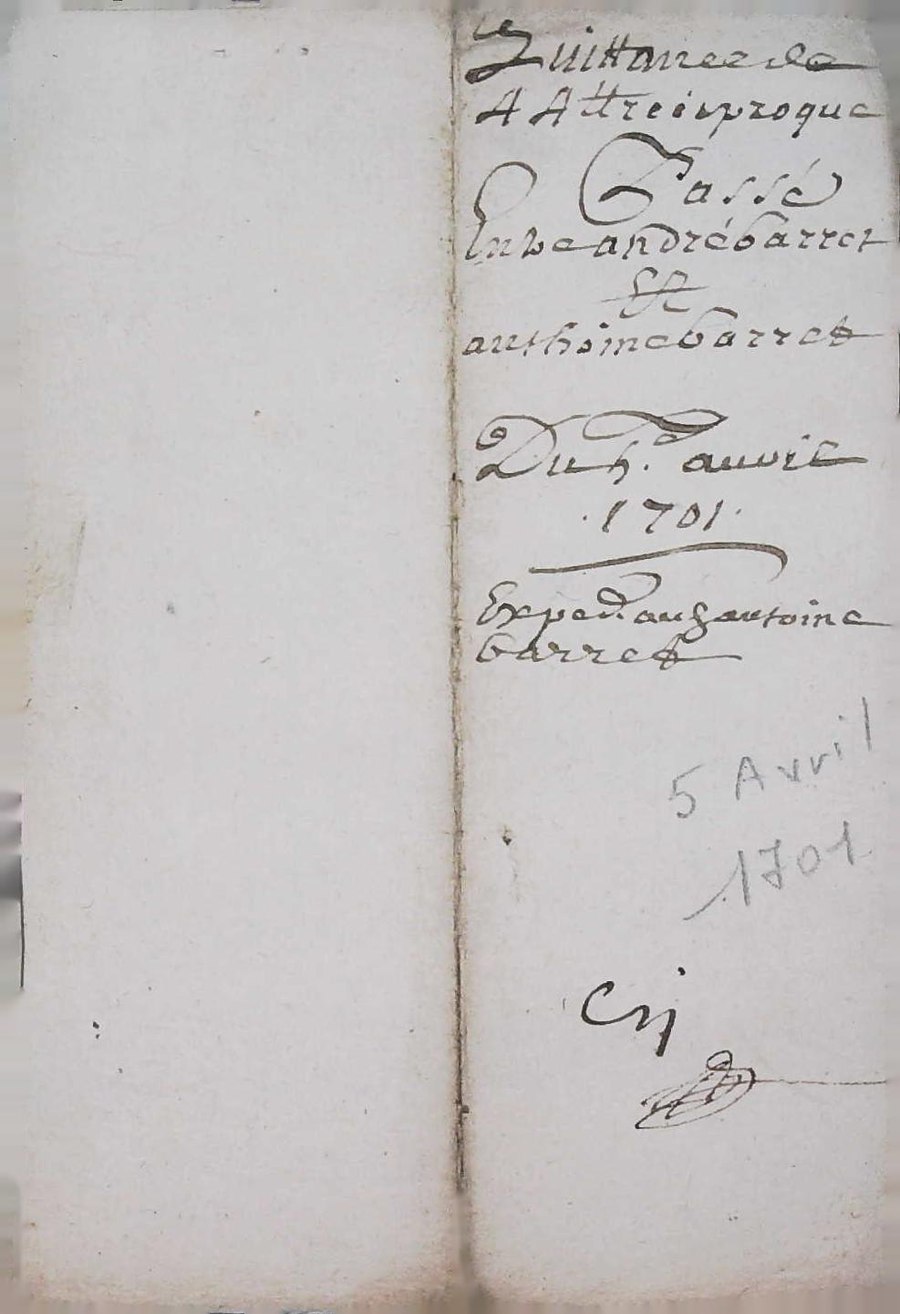 Quittance de
44 tt recisproque
Passé
Entre andré barret
Et
anthoine barret
Du 5. auvril
1701.
Exped. aud antoine
barret
5 Avril
1701